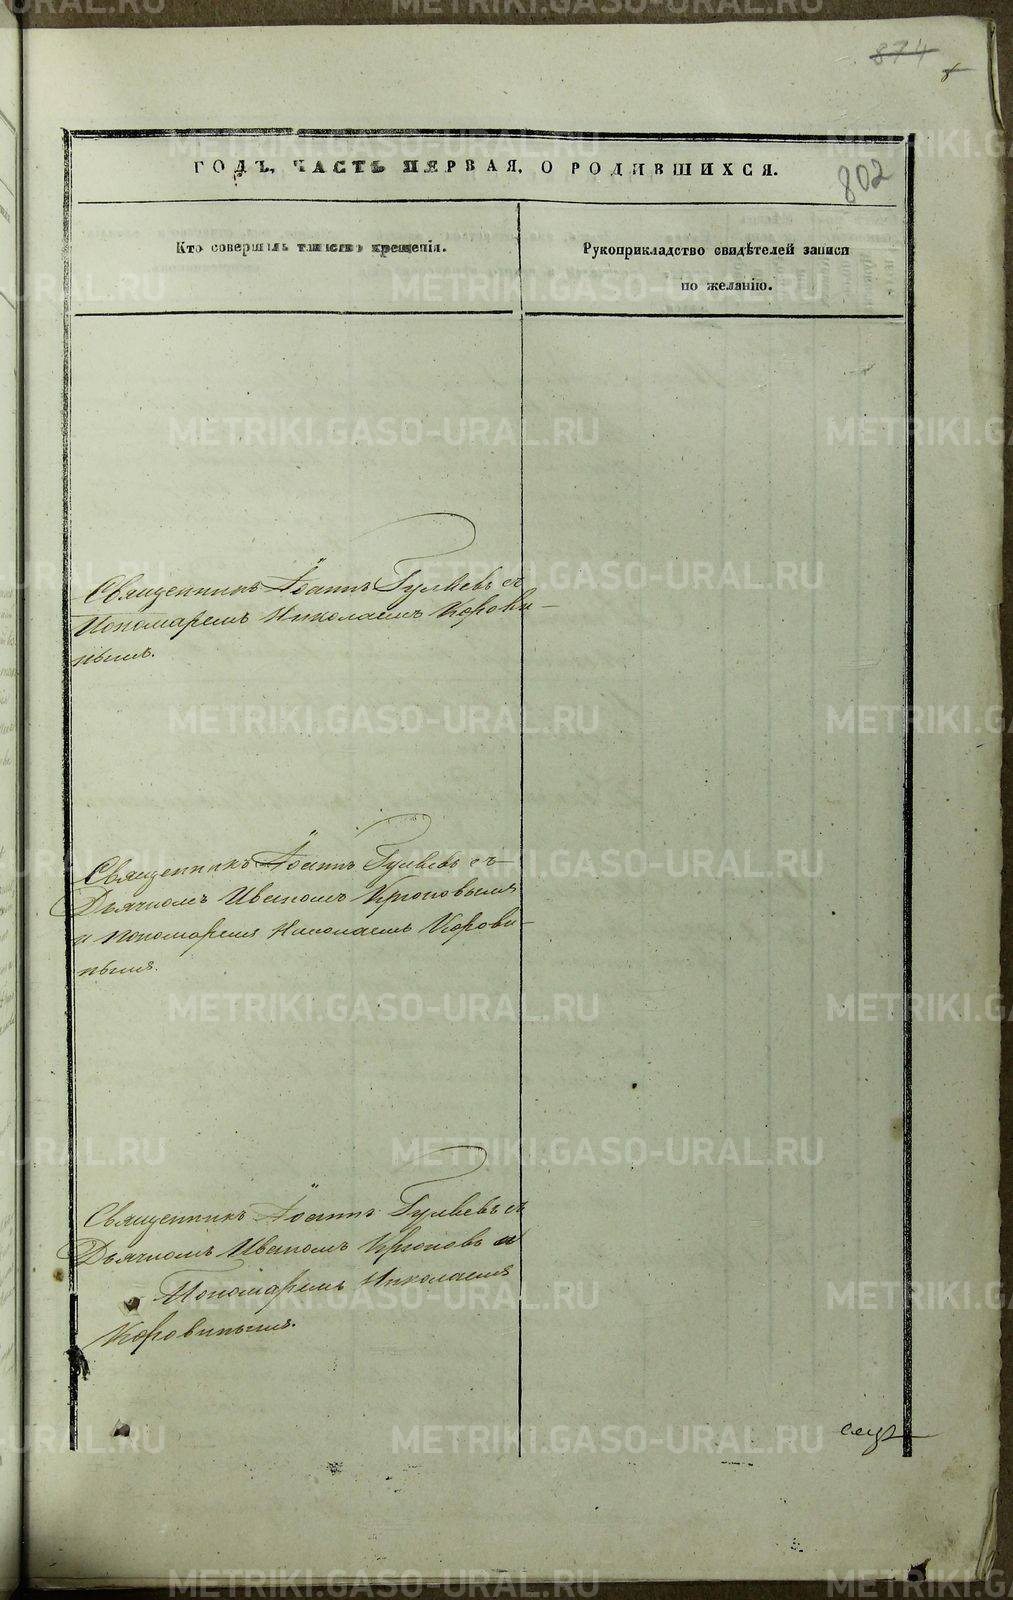 874
802
ГОДЪ, ЧАСТЬ ПЕРВАЯ, О РОДИВШИХСЯ.
Кто совершилъ таинство крещенія.
Рукоприкладство свидѣтелей записи
по желанію.
Священникъ Іоаннъ Гуляевъ съ
Пономаремъ Николаемъ Корови-
нымъ.
Священникъ Іоаннъ Гуляевъ съ
Дьячкомъ Иваномъ Крюковымъ
и пономаремъ Николаемъ Корови-
нымъ.
Священникъ Іоаннъ Гуляевъ съ
Дьячкомъ Иваномъ Крюковъ и
Пономаремъ Николаемъ
Коровинымъ.
METRIKI.GASO-URAL.RU